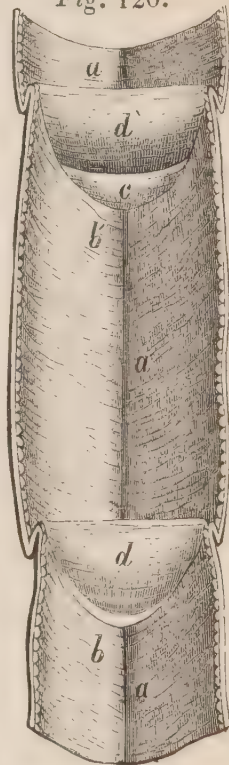 Fig. 126.
a
d
c
b
a
d
b
a